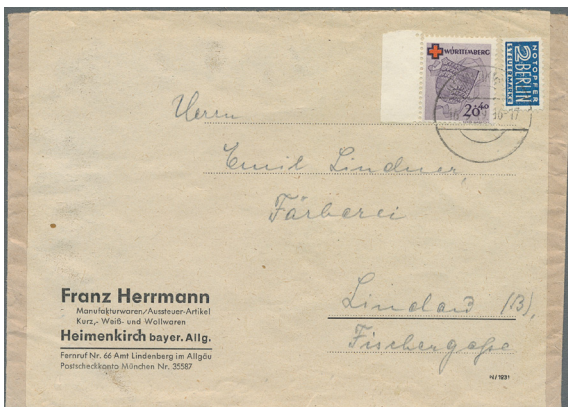 WÜRTTEMBERG
20+40
NOTOPFER
2 BERLIN
STEUERMARKE
Herrn
Emil Lindner,
Färberei
Lindau (B),
Fischergaße
Franz Herrmann
Manufakturwaren/Aussteuer-Artikel
Kurz,- Weiß- und Wollwaren
Heimenkirch bayer. Allg.
Fernruf Nr. 66 Amt Lindenberg im Allgäu
Postscheckkonto München Nr. 35587